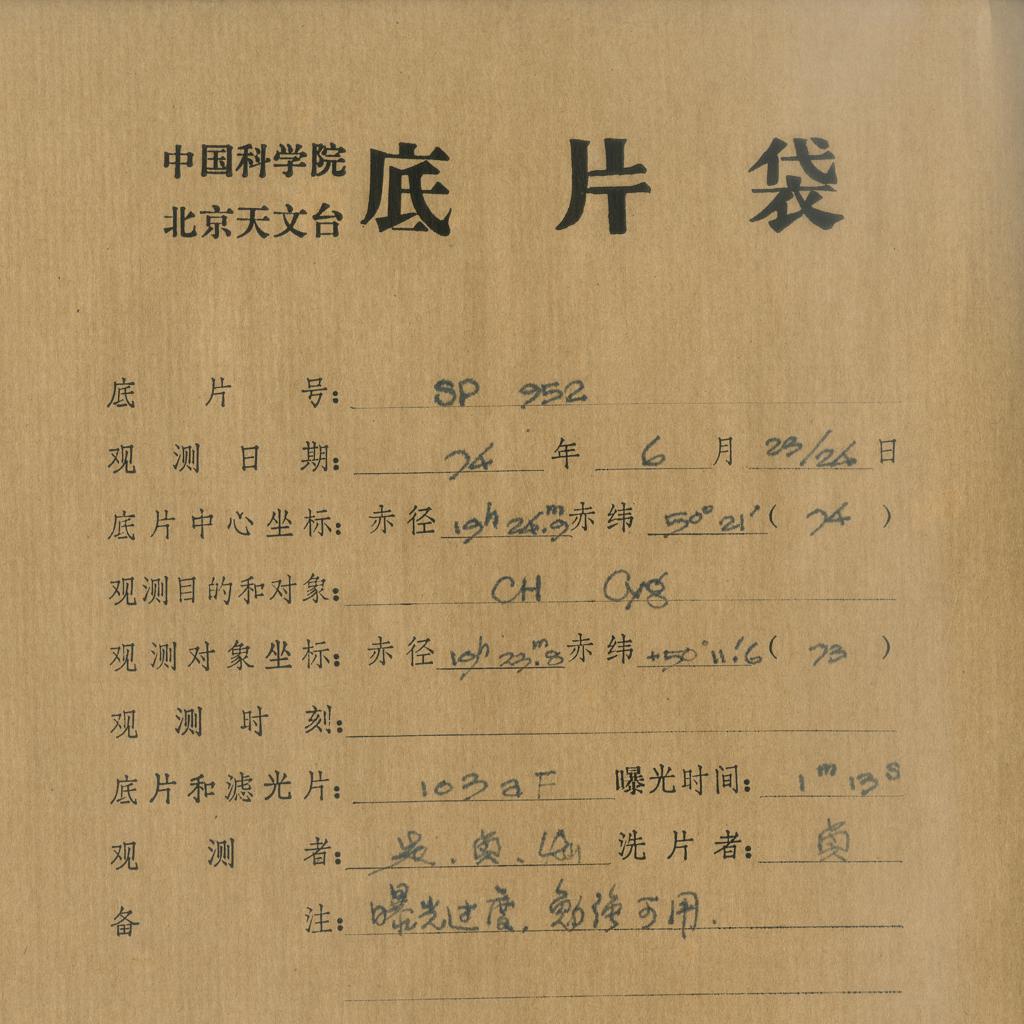 中国科学院
北京天文台
底片袋
底片号: SP 952
观测日期: 74 年 6 月 23/24 日
底片中心坐标: 赤径 19h 24.m9 赤纬 50° 21′ ( 74 )
观测目的和对象: CH Cyg
观测对象坐标: 赤径 19h 23.m8 赤纬 +50°11.′6 ( 73 )
观测时刻:
底片和滤光片: 103aF 曝光时间: 1m 13s
观测者: 吴.贞. 洗片者: 贞
备注: 曝光过度,勉强可用.